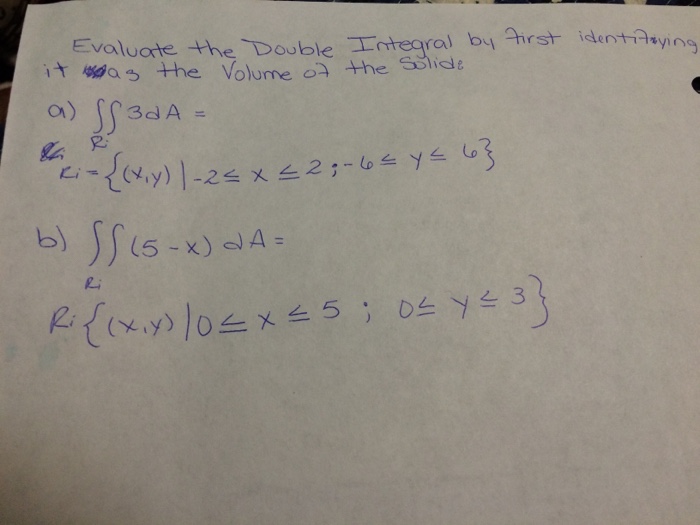 Evaluate the Double Integral by first identifying
it as the Volume of the Solid:
a) ∬ 3dA =
R:
R: = {(x,y) | -2 ≤ x ≤ 2 ; -6 ≤ y ≤ 6}
b) ∬ (5-x) dA =
R:
R: {(x,y) | 0 ≤ x ≤ 5 ; 0 ≤ y ≤ 3}